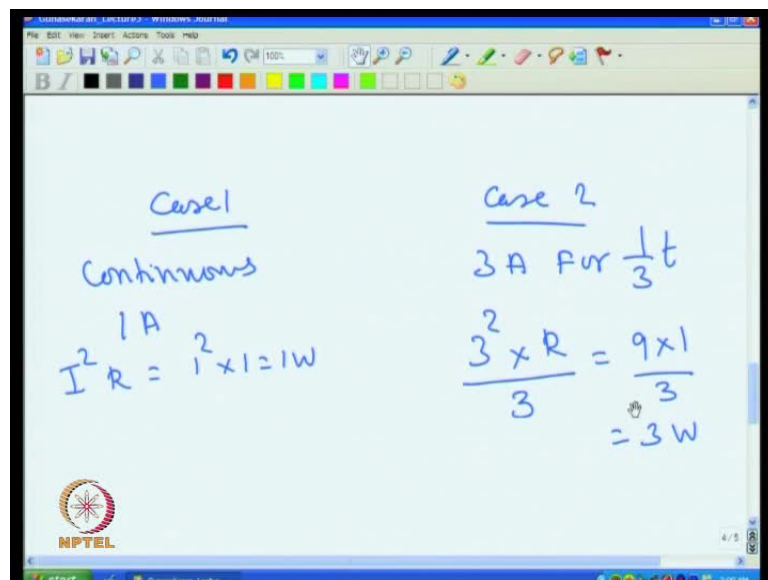 Gunasekaran_Lecture5 - Windows Journal
File Edit View Insert Actions Tools Help
100%
B I
Case1
Continuous
1 A
I² R = 1² × 1 = 1W
Case 2
3 A For 1/3 t
3² × R / 3 = 9 × 1 / 3
= 3 W
NPTEL
4/5
start